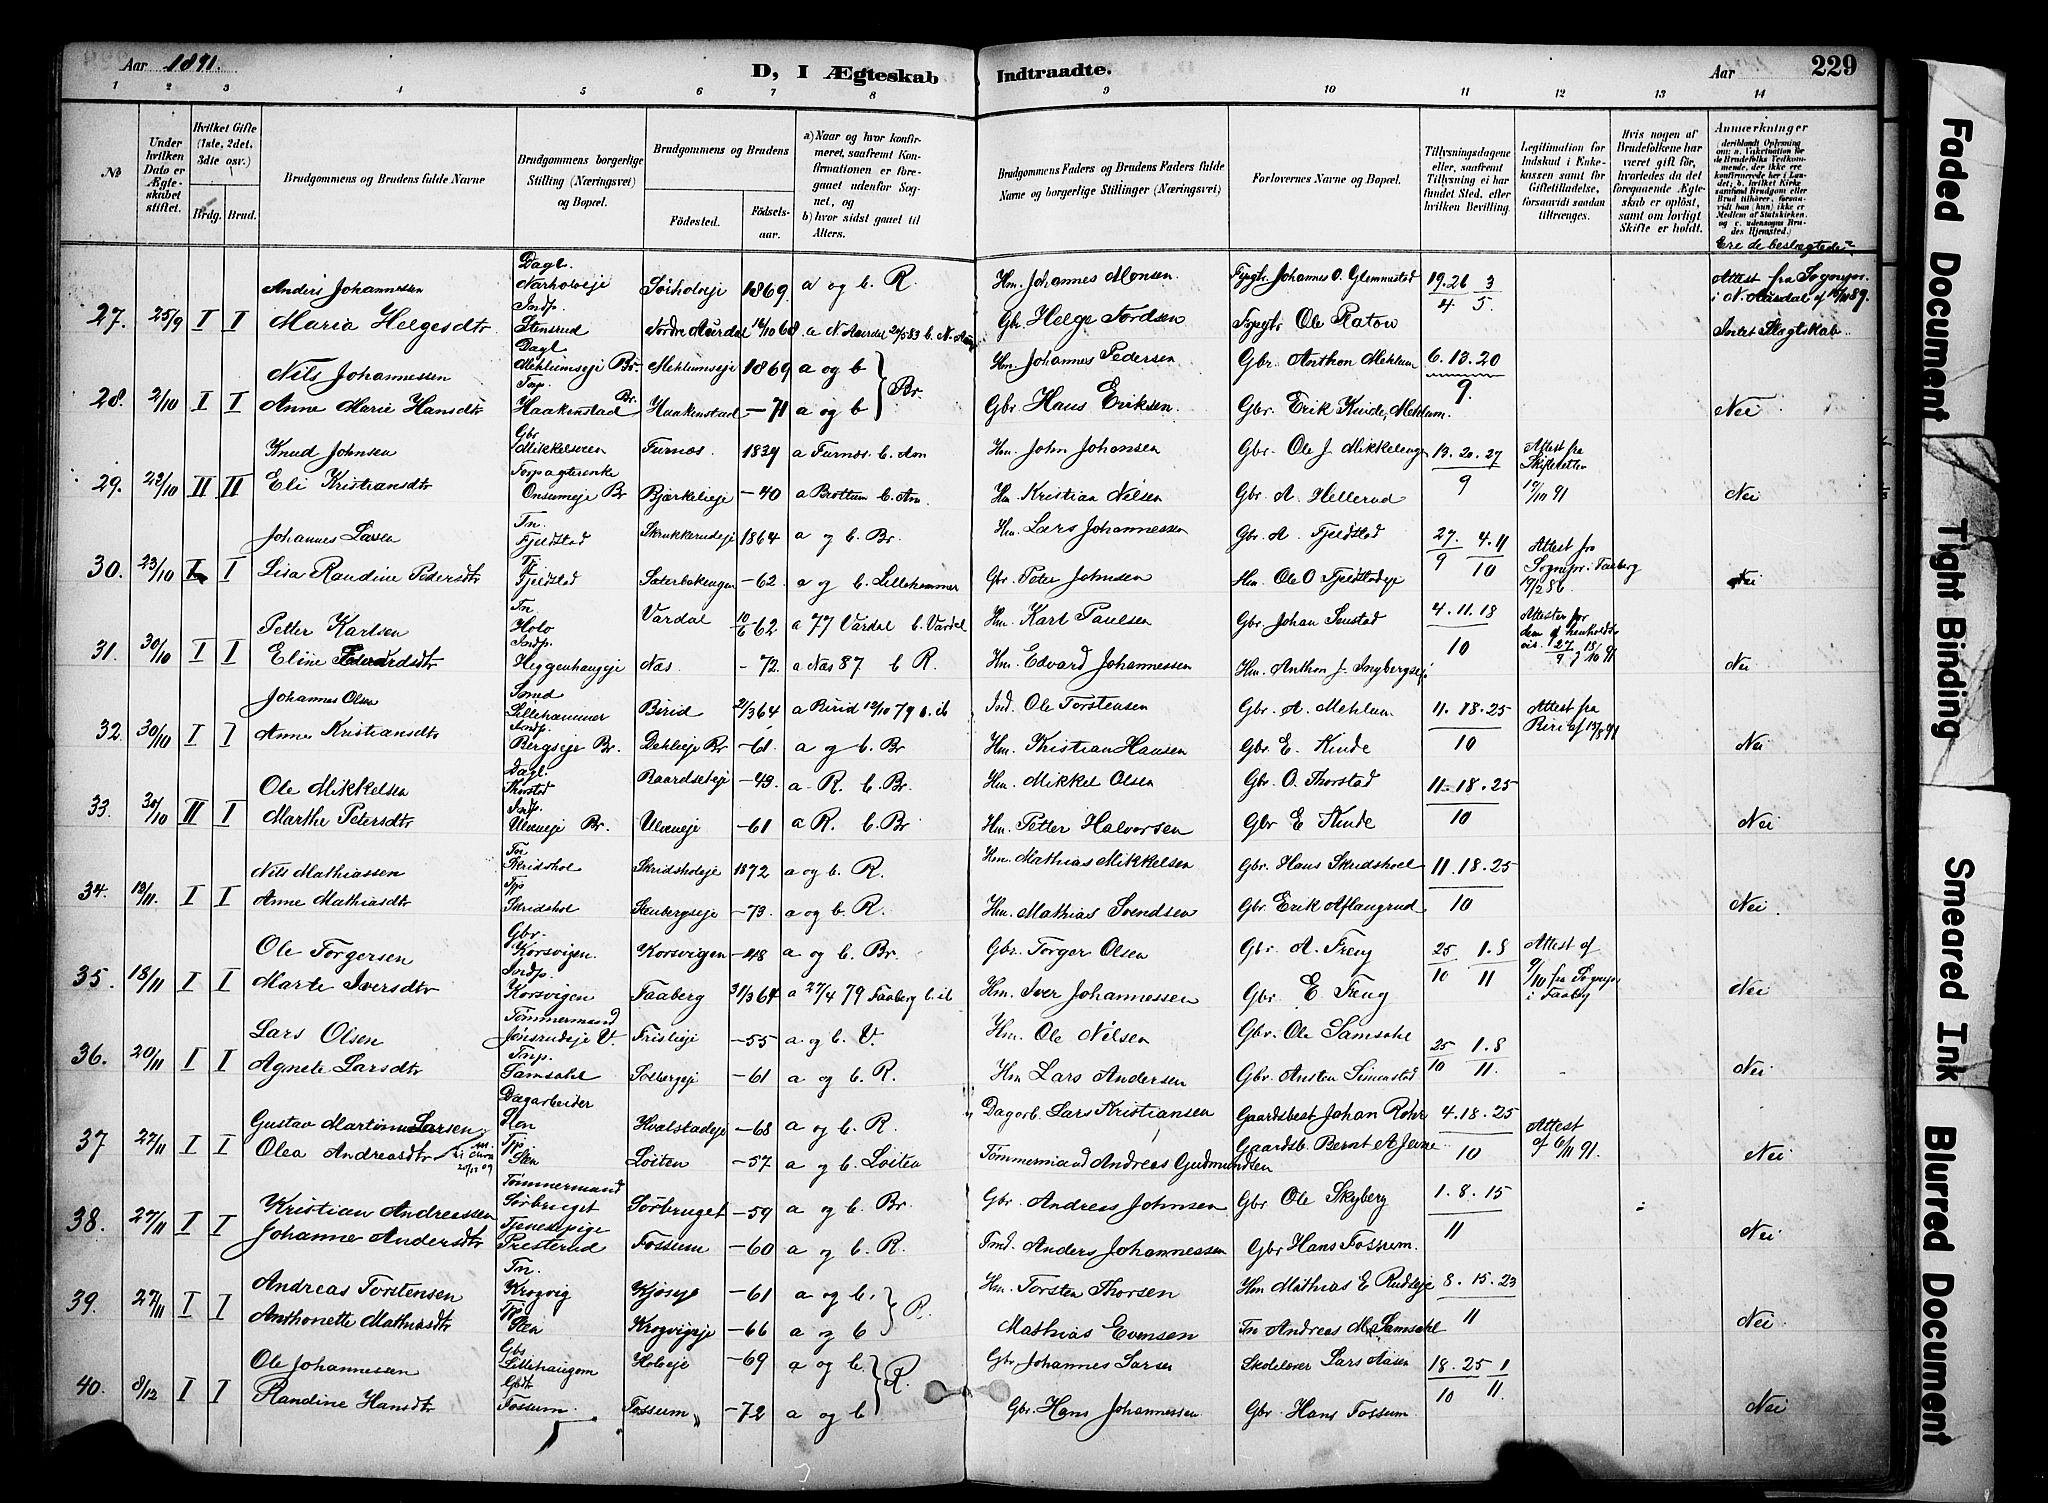 Aar 1891.
D, I Ægteskab Indtraadte.
Aar 229
1 2 3 4 5 6 7 8 9 10 11 12 13 14
No
Under hvilken Dato er Ægteskabet stiftet.
Hvilket Gifte (1ste, 2det, 3die osv.)
Brdg. Brud.
Brudgommens og Brudens fulde Navne
Brudgommens borgerlige Stilling (Næringsvei) og Bopæl.
Brudgommens og Brudens
Fødested. Fødselsaar.
a) Naar og hvor konfirmeret, saafremt Konfirmationen er foregaaet udenfor Sognet, og
b) hvor sidst gaaet til Alters.
Brudgommens Faders og Brudens Faders fulde Navne og borgerlige Stillinger (Næringsvei)
Forlovernes Navne og Bopæl.
Tillysningsdagene eller, saafremt Tillysning ei har fundet Sted, efter hvilken Bevilling.
Legitimation for Indskud i Enkekassen samt for Giftetilladelse, forsaavidt saadan tiltrænges.
Hvis nogen af Brudefolkene har været gift før, hvorledes da det foregaaende Ægteskab er opløst, samt om lovligt Skifte er holdt.
Anmærkninger
Ere de beslægtede?
27. 25/9 I I
Anders Johannessen Dagl. Narholveje Sørholveje 1869 a og b. R. Hm. Johannes Monsen Fpgtr. Johannes O. Glemmestad 19. 26/4 3/5 Attest fra Sognepr. i N. Aurdal
Maria Helgesdtr Indp. Stensrud Nordre Aurdal 16/10 68 a N. Aurdal 20/5 83 b. N. Aur Gbr Helge Tordsen Fpgtr Ole Raton Intet Slægtskab
28. 2/10 I I
Nils Johannessen Dagl Mehlumseje Br. Mehlumseje 1869 a og b Br. Hm. Johannes Pedersen Gbr. Anthon Mehlum 6. 13. 20/9
Anne Marie Hansdtr Tnp. Haakenstad Br. Haakenstad - 71 a og b Gbr. Hans Eriksen Gbr. Erik Kinde, Mehlum. Nei
29. 22/10 II II
Knud Johnsen Gbr Mikkelsveen Furnæs 1839 a Furnæs b. Hm. John Johansen Gbr. Ole J. Mikkelenge 13. 20. 27/9 Attest fra Skifteretten
Eli Kristiansdtr Onsumeje Br Bjørkelieje - 40 a Brøttum b. Hm. Kristian Nilsen Gbr. A. Hellerud 10/10 91 Nei
30. 23/10 I I
Johannes Larsen Tn. Fjeldstad Skrukkerudeje 1864 a og b. Br. Hm. Lars Johannessen Gbr. A. Fjeldstad 27/9 4. 11/10 Attest fra Sognepr. i Faaberg
Lisa Randine Pedersdtr Tj. Fjeldstad Sæterbakengen - 62. a og b. Lillehammer Gbr. Peter Johnsen Hm. Ole O. Fjeldstadeje 19/2 86. Nei
31. 30/10 I I
Petter Karlsen Tn. Holo Vardal 10/6 62 a 77 Vardal b. Vardal Hm. Karl Paulsen Gbr. Johan Sustad 4. 11. 18/10 Attester for dem af henholdsvis 27/9 & 18/10 91
Eline Edvardsdtr Indp. Heggenhaugeje Næs - 72. a Næs 87 b R. Hm. Edvard Johannessen Hm. Anthon J. Ingbergseje Nei
32. 30/10 I I
Johannes Olsen Smed Lillehammer Birid 21/3 64 a Birid 12/10 79 b. ib Ind. Ole Torstensen Gbr. A. Mehlum 11. 18. 25/10 Attest fra Biri af 13/8 91
Anne Kristiansdtr Indp. Bergseje Br. Dehlieje Br - 61. a og b. Br Hm. Kristian Hansen Gbr. E. Kinde Nei
33. 30/10 II I
Ole Mikkelsen Dagl. Thorstad Raardseteje - 49 a. R. b. Br. Hm. Mikkel Olsen Gbr. O. Thorstad 11. 18. 25/10
Marthe Petersdtr Indp. Ulveneje Br. Ulveneje - 61 a R. b. Br Hm. Petter Halvorsen Gbr E. Kinde Nei
34. 13/11. I I
Nils Mathiassen Tn Skridshol Skridsholeje 1872 a og b. R. Hm. Mathias Mikkelsen Gbr. Hans Skridshol 11. 18. 25/10
Anne Mathiasdtr Tjp Skridshol Stenbergseje - 73. a og b. R. Hm. Mathias Svendsen Gbr. Erik Aflangrud Nei.
35. 18/11 I I
Ole Torgersen Gbr. Korsvigen Korsvigen - 48 a og b. Br. Gbr. Torger Olsen Gbr. A. Freng 25/10 1. 8/11 Attest af 9/10 fra Sognepr i Faaberg
Marte Iversdtr Indp. Korsvigen Faaberg 31/3 64 a 27/4 79 Faaberg b. ib Hm. Iver Johannessen Gbr E. Freng Nei
36. 20/11 I I
Lars Olsen Tømmermand Jønsrudeje V. Frislieje - 55 a og b. V. Hm. Ole Nilsen Gbr. Ole Samsahl 25/10 1. 8/11.
Agnete Larsdtr Tnp. Samsahl Solbergeje - 61 a og b. R. Hm Lars Andersen Gbr. Ansten Simenstad Nei
37. 27/11 I I
Gustav Martinus Larsen Dagarbeider Sten Hvalstadeje - 68 a og b. R. Dagarb. Lars Kristiansen Gaardsbest Johan Røhr 4. 18. 25/10 Attest af 6/11 91.
Olea Andreasdtr Tjp Sten Løiten - 57 a og b. Løiten Tømmermand Andreas Gudmundsen Gaardsb. Bernt A. Jevne Nei
38. 27/11 I I
Kristian Andreassen Tømmermand Sørbruget Sørbruget - 59 a og b. Br. Gbr. Andreas Johnsen Gbr Ole Skyberg 1. 8. 15/11
Johanne Andersdtr Tjenestpige Presterud Fossum - 60 a og b. R. Tmd. Anders Johannessen Gbr Hans Fossum. Nei
39. 27/11 I I
Andreas Torstensen Tn. Krogvig Kjoseje - 61 a og b. R. Hm. Torsten Thorsen Hm Mathias E Rudseje 8. 15. 23/11
Anthonette Mathiasdtr Tjp Sten Krogvigeje - 66 a og b Mathias Evensen Tn Andreas M. Samsahl Nei
40. 8/12 I I
Ole Johannessen Gbs Lillehaugom Holeje - 69 a og b. R. Gbr. Johannes Larsen Skolelærer Lars Aasen 18. 25/10 1/11.
Randine Hansdtr Gbdt Fossum. Fossum - 72 a og b Gbr. Hans Johannessen Gbr Hans Fossum. Nei
Faded Document
Tight Binding
Smeared Ink
Blurred Document